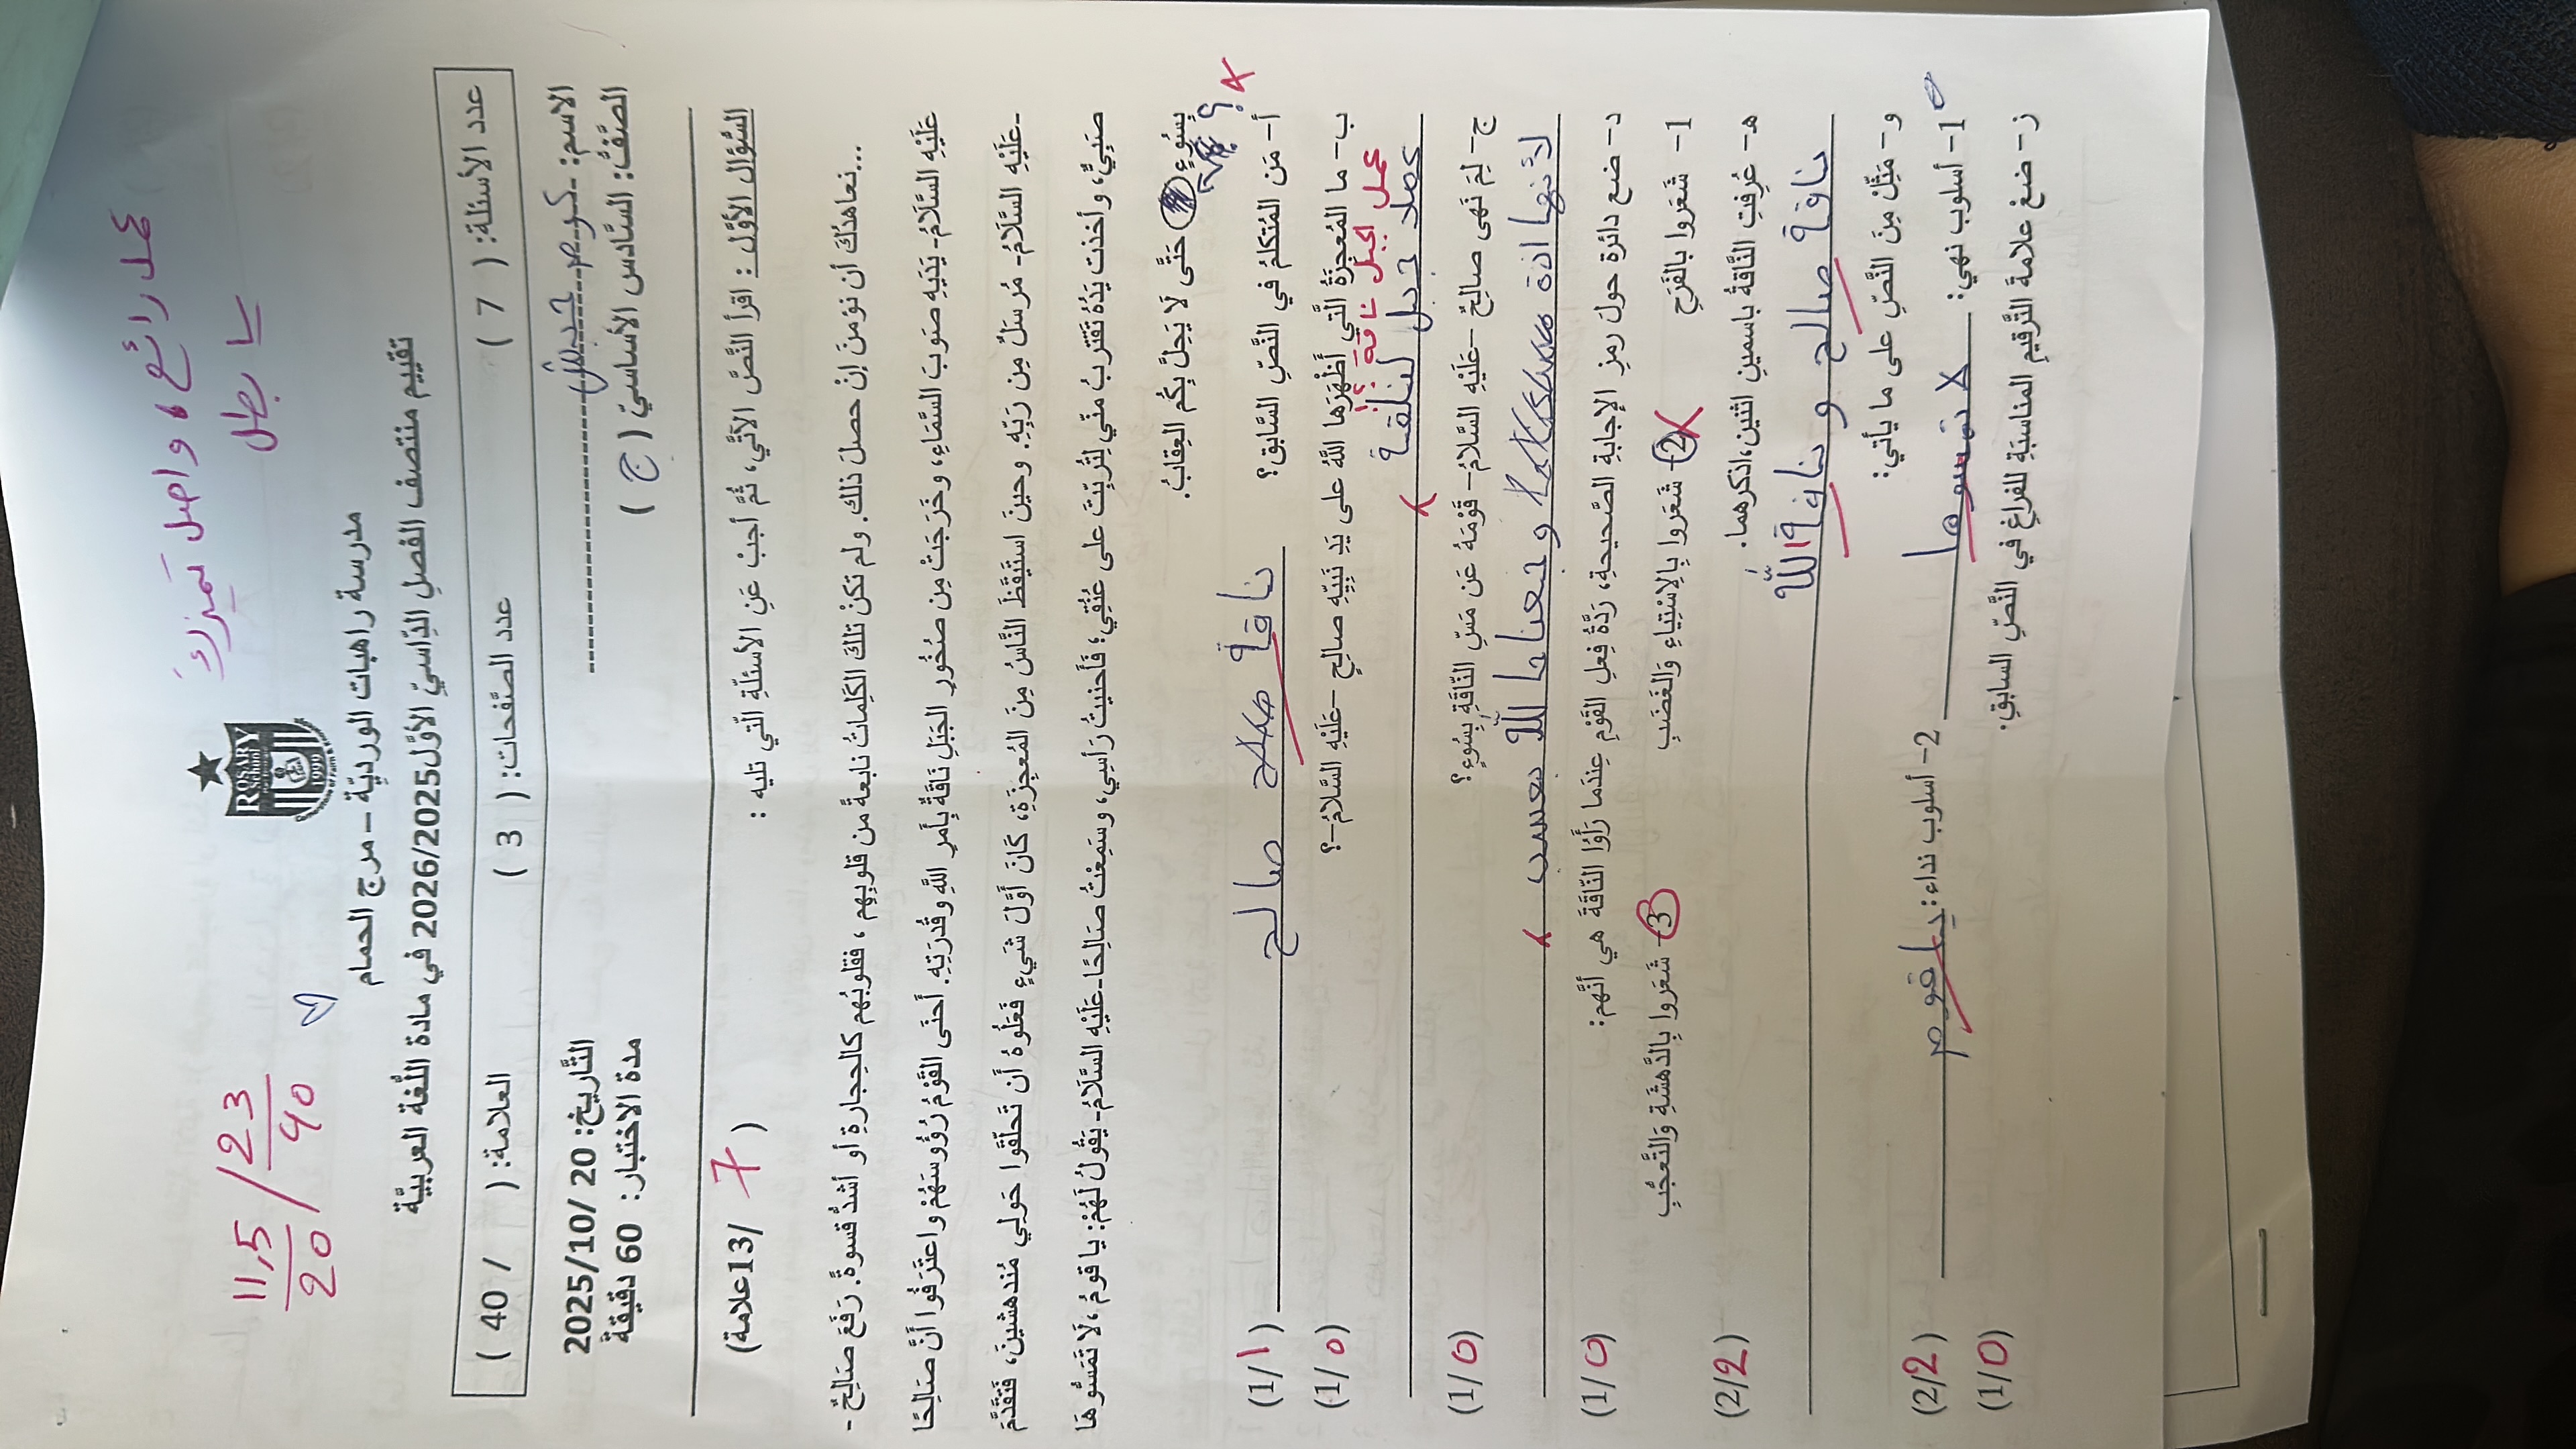 عمل رائع، واصل تميزك
يا بطل
11,5/20 / 23/40
ROSARY
مدرسة راهبات الورديّة – مرج الحمام
تقييم منتصف الفصل الدّراسيّ الأوّل2026/2025 في مادة اللّغة العربيّة
عدد الأسئلة: ( 7 ) عدد الصّفحات: ( 3 ) العلامة: ( / 40 )
الاسم: كرم التّاريخ: 20 /2025/10
الصّفّ: السّادس الأساسيّ ( ج ) مدة الاختبار: 60 دقيقة
السّؤال الأوّل : اقرأ النّصّ الآتي، ثمّ أجب عن الأسئلة الّتي تليه : ( 7 /13علامة)
...نعاهدُكَ أن نؤمنَ إنْ حصلَ ذلكَ. ولم تكنْ تلكَ الكلماتُ نابعةً من قلوبِهم ، فقلوبُهم كالحِجارةِ أو أشدُّ قسوةً. رَفَعَ صَالِحٌ -
عَلَيْهِ السَّلَامُ- يَدَيهِ صَوبَ السَّمَاءِ، وخَرَجَتْ مِن صُخُورِ الجَبَلِ نَاقَةٌ بِأَمرِ اللَّهِ وقُدرَتِهِ. أَحنَى القَوْمُ رُؤُوسَهُمْ واعتَرَفُوا أَنَّ صَالِحًا
-عَلَيْهِ السَّلَامُ- مُرسَلٌ مِن رَبِّهِ. وحينَ استَيقَظَ النَّاسُ مِنَ المُعجِزَةِ، كَانَ أَوَّلَ شَيءٍ فَعَلُوهُ أَن تَحَلَّقُوا حَولِي مُندهشينَ، فَتَقَدَّمَ
صَبِيٌّ، وأخذت يَدُهُ تَقتَرِبُ منّي لِتُربِّتَ على عُنُقِي؛ فَأَحنيتُ رَأسِي، وسَمِعْتُ صَالِحًا-عَلَيْهِ السَّلَامُ- يَقُولُ لَهُمْ: يا قومُ ، لَا تَمَسُّوهَا
بِسُوءٍ حَتَّى لَا يَحِلَّ بِكُم العِقَابُ.
أ- مَن المُتكلمُ في النَّصِّ السَّابقِ؟ ناقة صالح (1/1)
ب- ما المُعجِزَةُ الَّتي أَظْهَرَها اللَّهُ على يَدِ نَبِيِّهِ صالِحٍ –عَلَيْهِ السَّلامُ-؟ (1/0)
عمل الجبل ناقة ؟!
جبل
ج- لِمَ نَهى صالِحٌ –عَلَيْهِ السَّلامُ- قَوْمَهُ عَن مَسِّ النّاقَةِ بِسُوءٍ؟ (1/0)
لأنها و الله
د- ضع دائرة حولَ رمزِ الإجابةِ الصّحيحةِ، رَدَّةُ فِعلِ القَوْمِ عِندَما رَأَوُا النّاقَةَ هي أَنَّهم: (1/0)
1- شَعَروا بالفَرَحِ 2- شَعَروا بِالِاسْتِياءِ وَالغَضَبِ 3- شَعَروا بِالدَّهشَةِ وَالتَّعَجُّبِ
هـ- عُرِفَتِ النّاقةُ باسمينِ اثنينِ،اذكرهما. (2/2)
ناقة صالح و ناقة الله
و- مَثِّلْ مِنَ النَّصِّ على ما يأتي: (2/2)
1- أسلوب نهي: لا تمسوها 2- أسلوب نداء: يا قوم
ز- ضعْ علامةَ التَّرقيمِ المناسبَةِ للفراغِ في النَّصِّ السابقِ. (1/0)